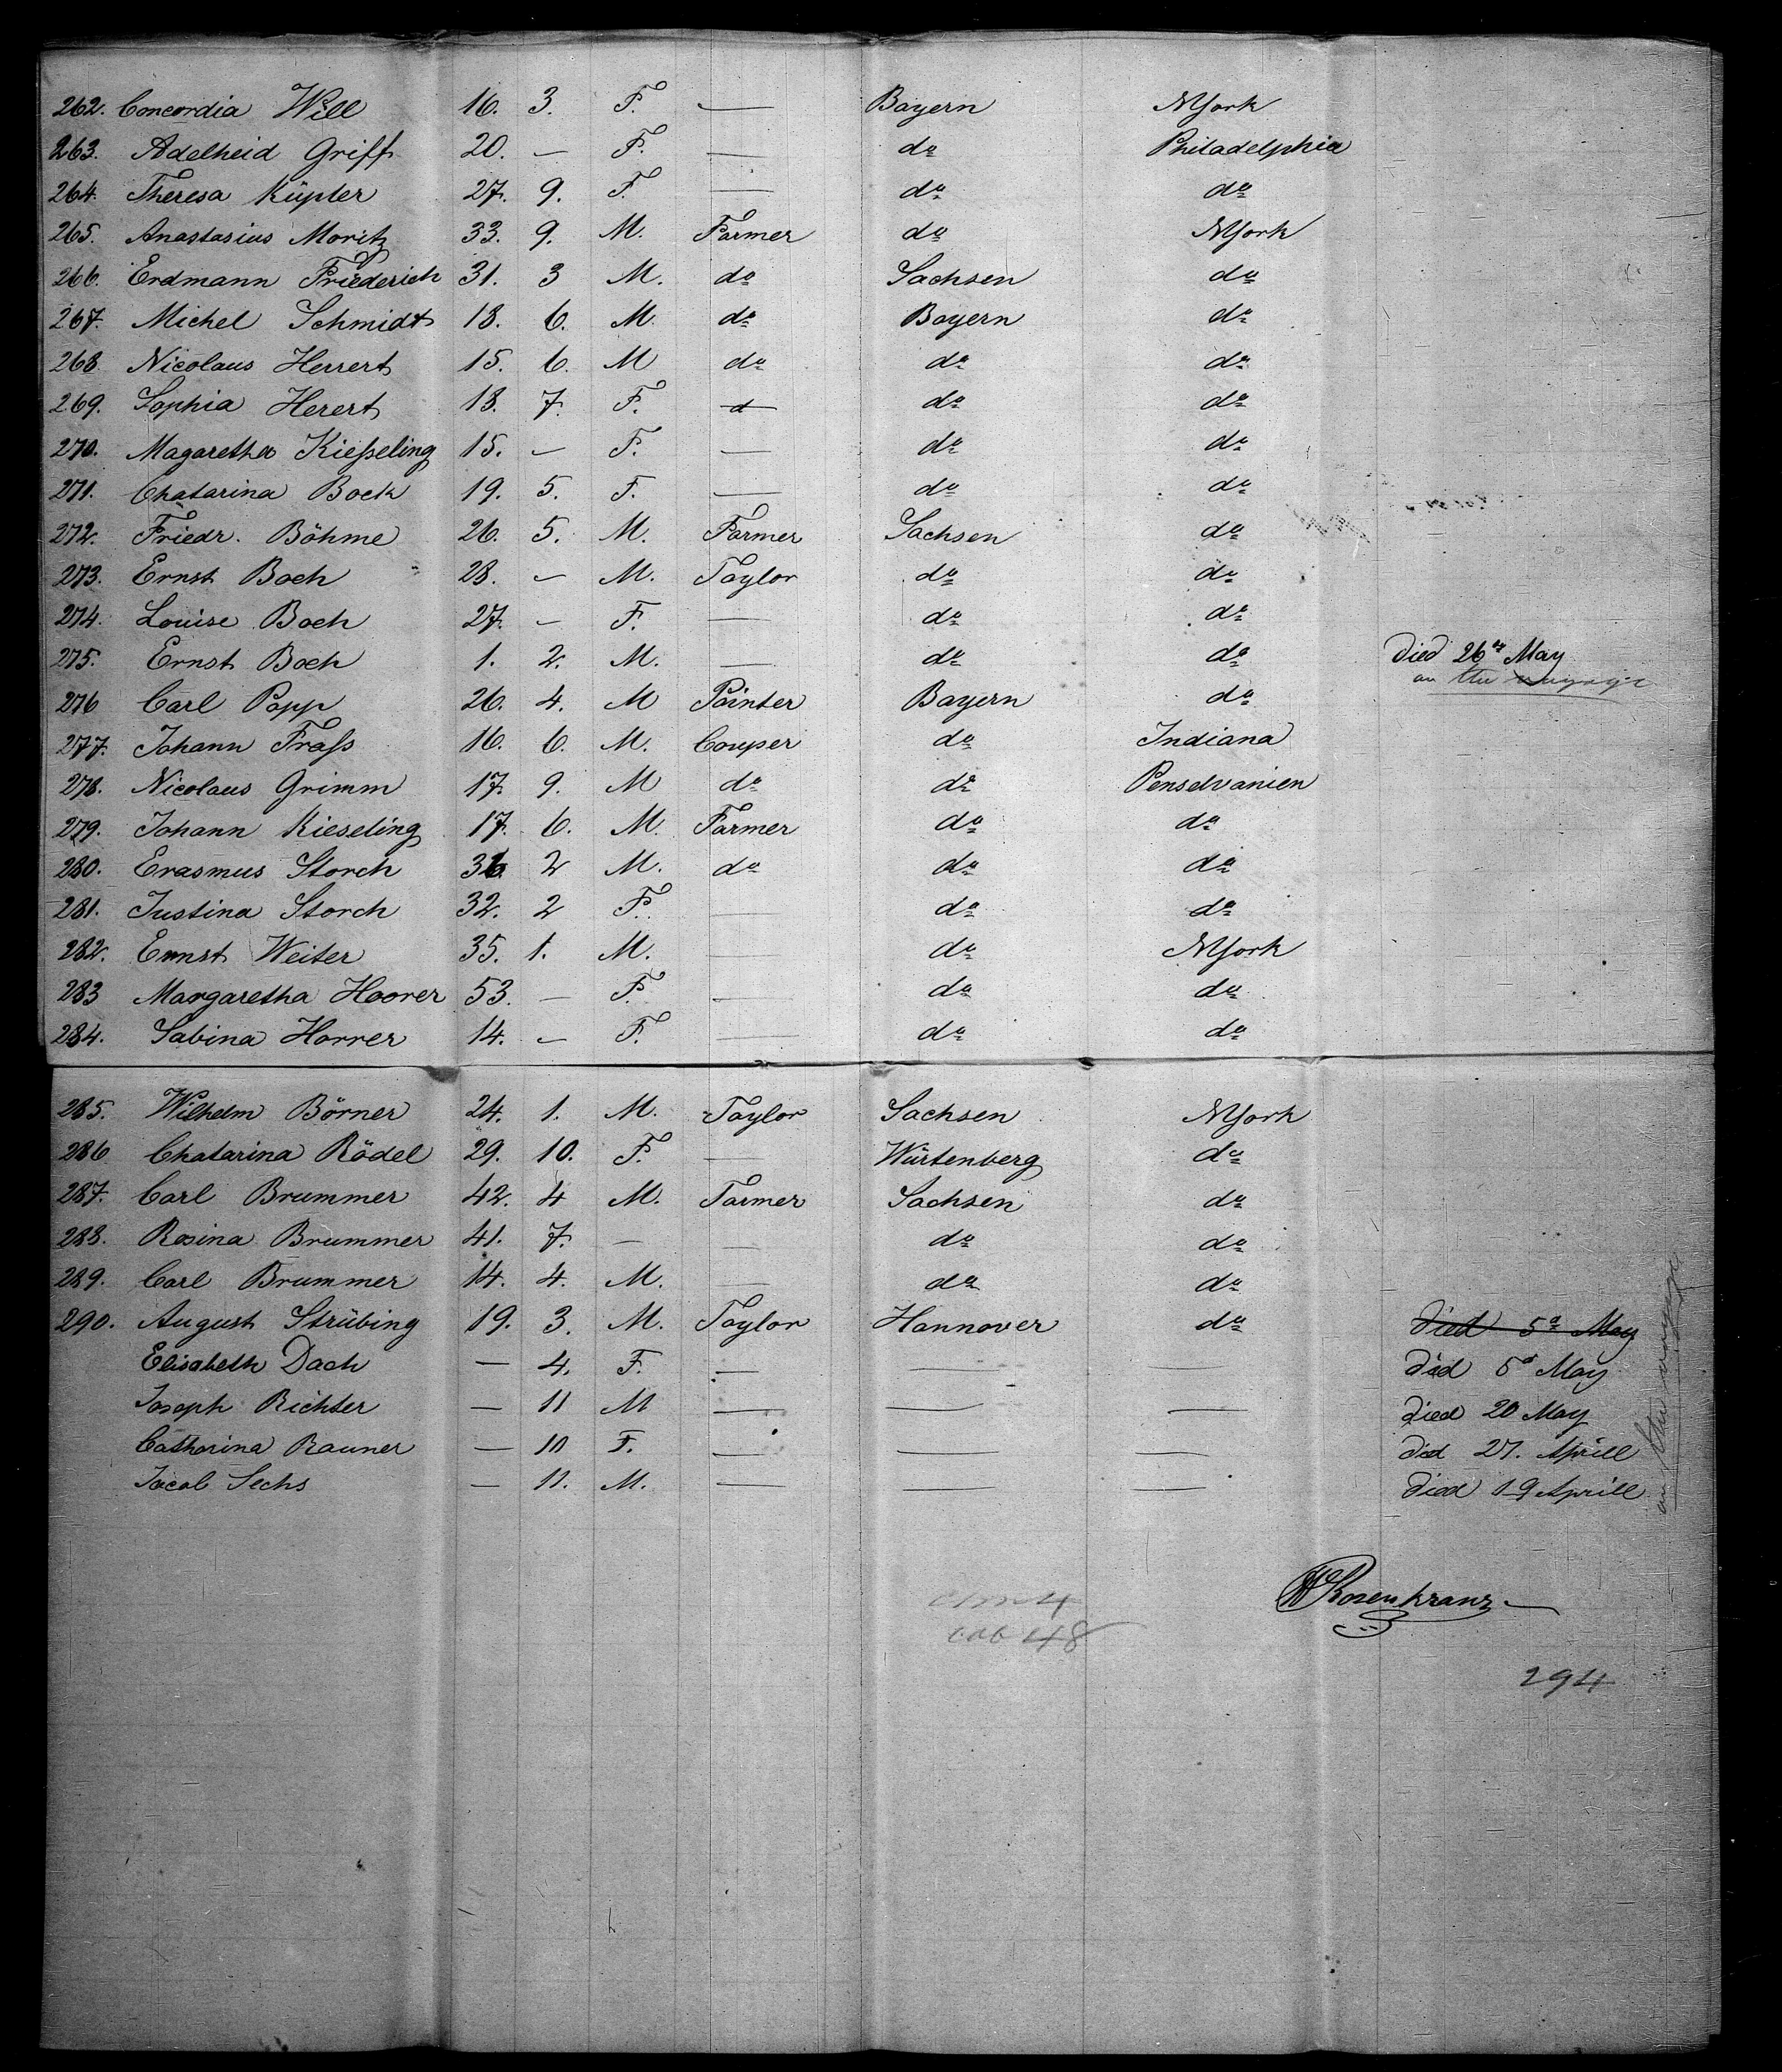 262. Concordia Will 16. 3. F. — Bayern NYork
263. Adelheid Griff 20. — F. — do Philadelphia
264. Theresa Küpter 27. 9. F. — do do
265. Anastasius Moritz 33. 9. M. Farmer do NYork
266. Erdmann Friederich 31. 3 M. do Sachsen do
267. Michel Schmidt 18. 6. M. do Bayern do
268. Nicolaus Herrert 15. 6. M do do do
269. Sophia Herert 18. 7. F. d do do
270. Magaretha Kießeling 15. — F. — do do
271. Chatarina Bock 19. 5. F. — do do
272. Friedr. Böhme 26. 5. M. Farmer Sachsen do
273. Ernst Boch 28. — M. Taylor do do
274. Louise Boch 27. — F. — do do
275. Ernst Boch 1. 2. M. — do do Died 26 May
on the voyage
276 Carl Popp 26. 4. M Painter Bayern do
277. Johann Fraß 16. 6. M. Couper do Indiana
278. Nicolaus Grimm 17 9. M do do Penselvanien
279. Johann Kieseling 17. 6. M. Farmer do do
280. Erasmus Storch 36 2 M. do do do
281. Justina Storch 32. 2 F. — do do
282. Ernst Weiter 35. 1. M. — do NYork
283 Margaretha Hoorer 53. — F. — do do
284. Sabina Horrer 14. — F. — do do
285. Wilhelm Börner 24. 1. M. Taylor Sachsen NYork
286 Chatarina Rödel 29. 10. F. — Würtenberg do
287. Carl Brummer 42. 4 M. Farmer Sachsen do
288. Rosina Brummer 41. 7. — — do do
289. Carl Brummer 14. 4. M. — do do
290. August Strübing 19. 3. M. Taylor Hannover do Died 5 May
Elisabeth Dach — 4. F. — — — Died 5 May
Joseph Richter — 11 M — — — Died 20 May
Catharina Rauner — 10 F. — — — Died 27. Aprill
Jacob Sechs — 11. M. — — — Died 19 Aprill
on the voyage
Rosenkranz
48
294